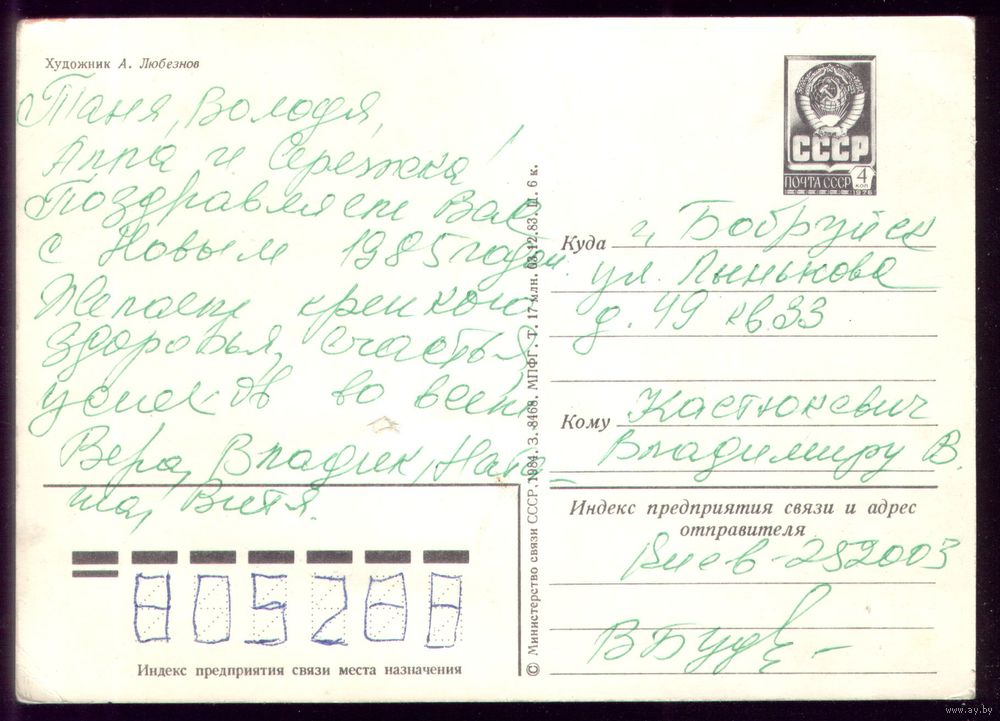 Художник А. Любезнов
Таня, Володя,
Алла и Сережка!
Поздравляем Вас
с Новым 1985 годом.
Желаем крепкого
здоровья, счастья,
успехов во всем
Вера, Владик, Ната-
ша, Витя.
СССР
ПОЧТА СССР 4 КОП
1976
Куда г. Бобруйск
ул. Лынькова
д. 49 кв. 33
Кому Кастюкевич
Владимиру В.
Индекс предприятия связи и адрес
отправителя
Киев-252003
Индекс предприятия связи места назначения
© Министерство связи СССР. 1984. З. 8468. МПФГ. Т. 17 млн. 03.12.83. Ц. 6 к.
www.ay.by